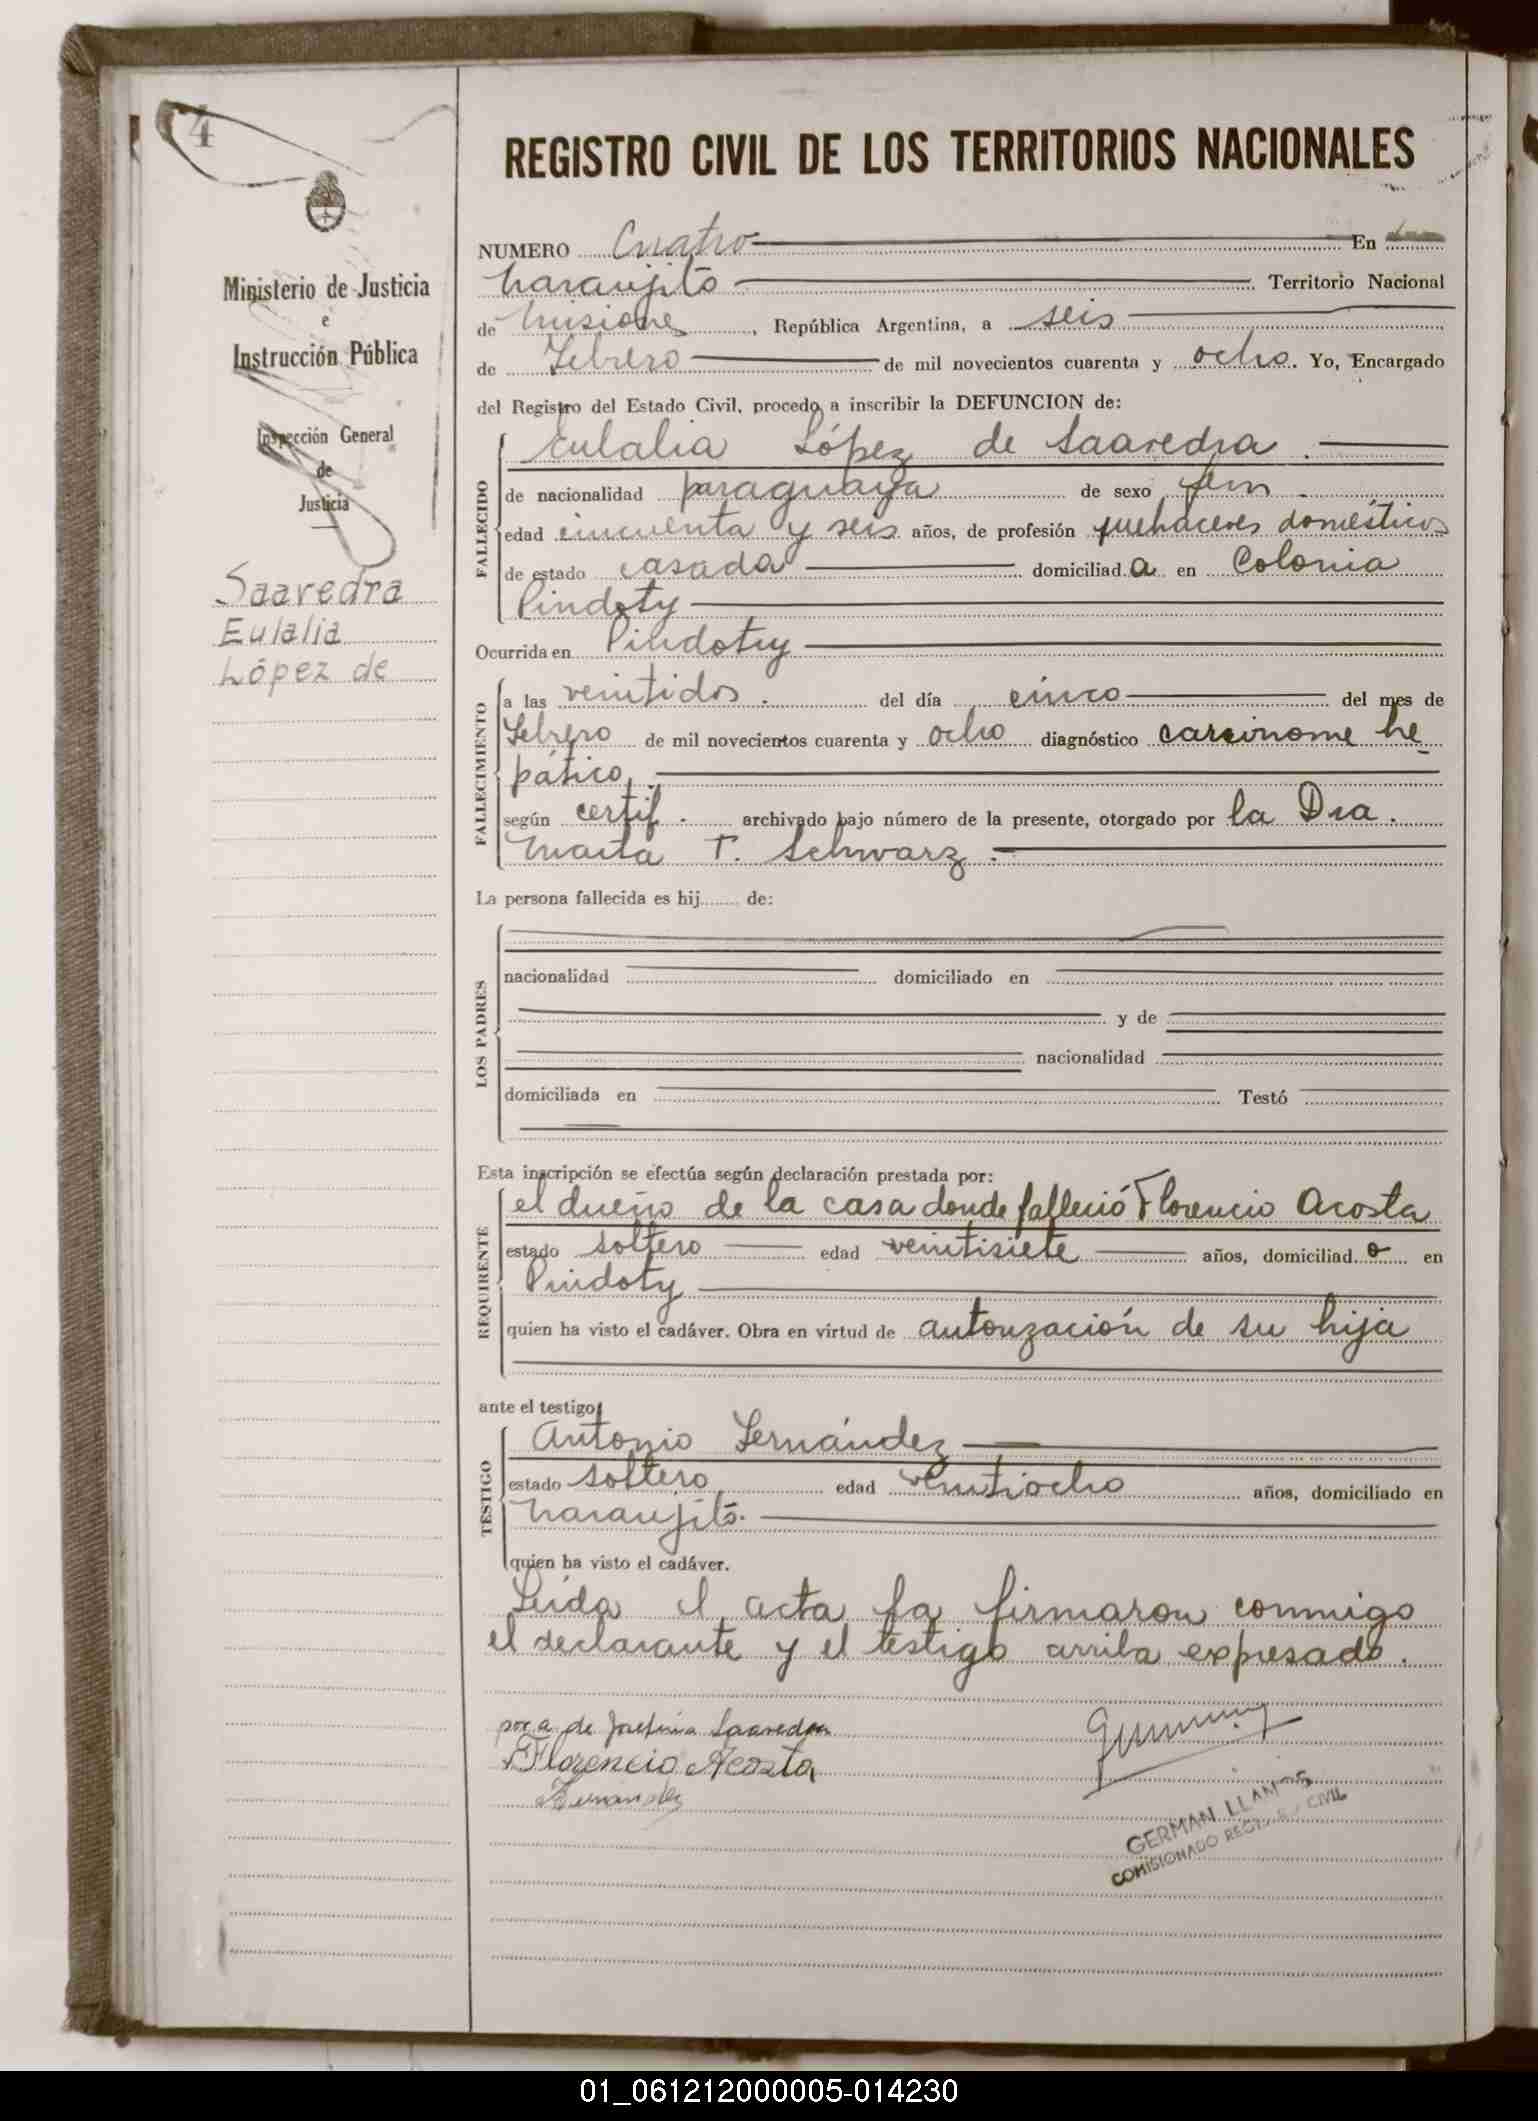 4
Ministerio de Justicia
e
Instrucción Pública
Inspección General
de
Justicia
Saavedra
Eulalia
López de
REGISTRO CIVIL DE LOS TERRITORIOS NACIONALES
NUMERO Cuatro En
Naranjito Territorio Nacional
de Misiones, República Argentina, a seis
de Febrero de mil novecientos cuarenta y ocho. Yo, Encargado
del Registro del Estado Civil, procedo a inscribir la DEFUNCION de:
FALLECIDO
Eulalia López de Saavedra.
de nacionalidad paraguaya de sexo fem.
edad cincuenta y seis años, de profesión quehaceres domésticos
de estado casada domiciliad.a en Colonia
Pindoty
Ocurrida en Pindoty
FALLECIMIENTO
a las veintidos. del día cinco del mes de
Febrero de mil novecientos cuarenta y ocho diagnóstico carcinome he-
pático.
según certif. archivado bajo número de la presente, otorgado por la Dra.
Marta T. Schwarz.
La persona fallecida es hij........ de:
LOS PADRES
nacionalidad domiciliado en
y de
nacionalidad
domiciliada en Testó
Esta inscripción se efectúa según declaración prestada por:
REQUIRENTE
el dueño de la casa donde falleció Florencio Acosta
estado soltero edad veintisiete años, domiciliad.o en
Pindoty
quien ha visto el cadáver. Obra en virtud de autorización de su hija
ante el testigo
TESTIGO
Antonio Fernández
estado soltero edad veintiocho años, domiciliado en
Naranjito.
quien ha visto el cadáver.
Leida el acta la firmaron conmigo
el declarante y el testigo arriba expresado.
por a. de Josefina Saavedra
Florencio Acosta
Fernández
GERMAN LLAMOS
COMISIONADO REGISTRO CIVIL
01_061212000005-014230